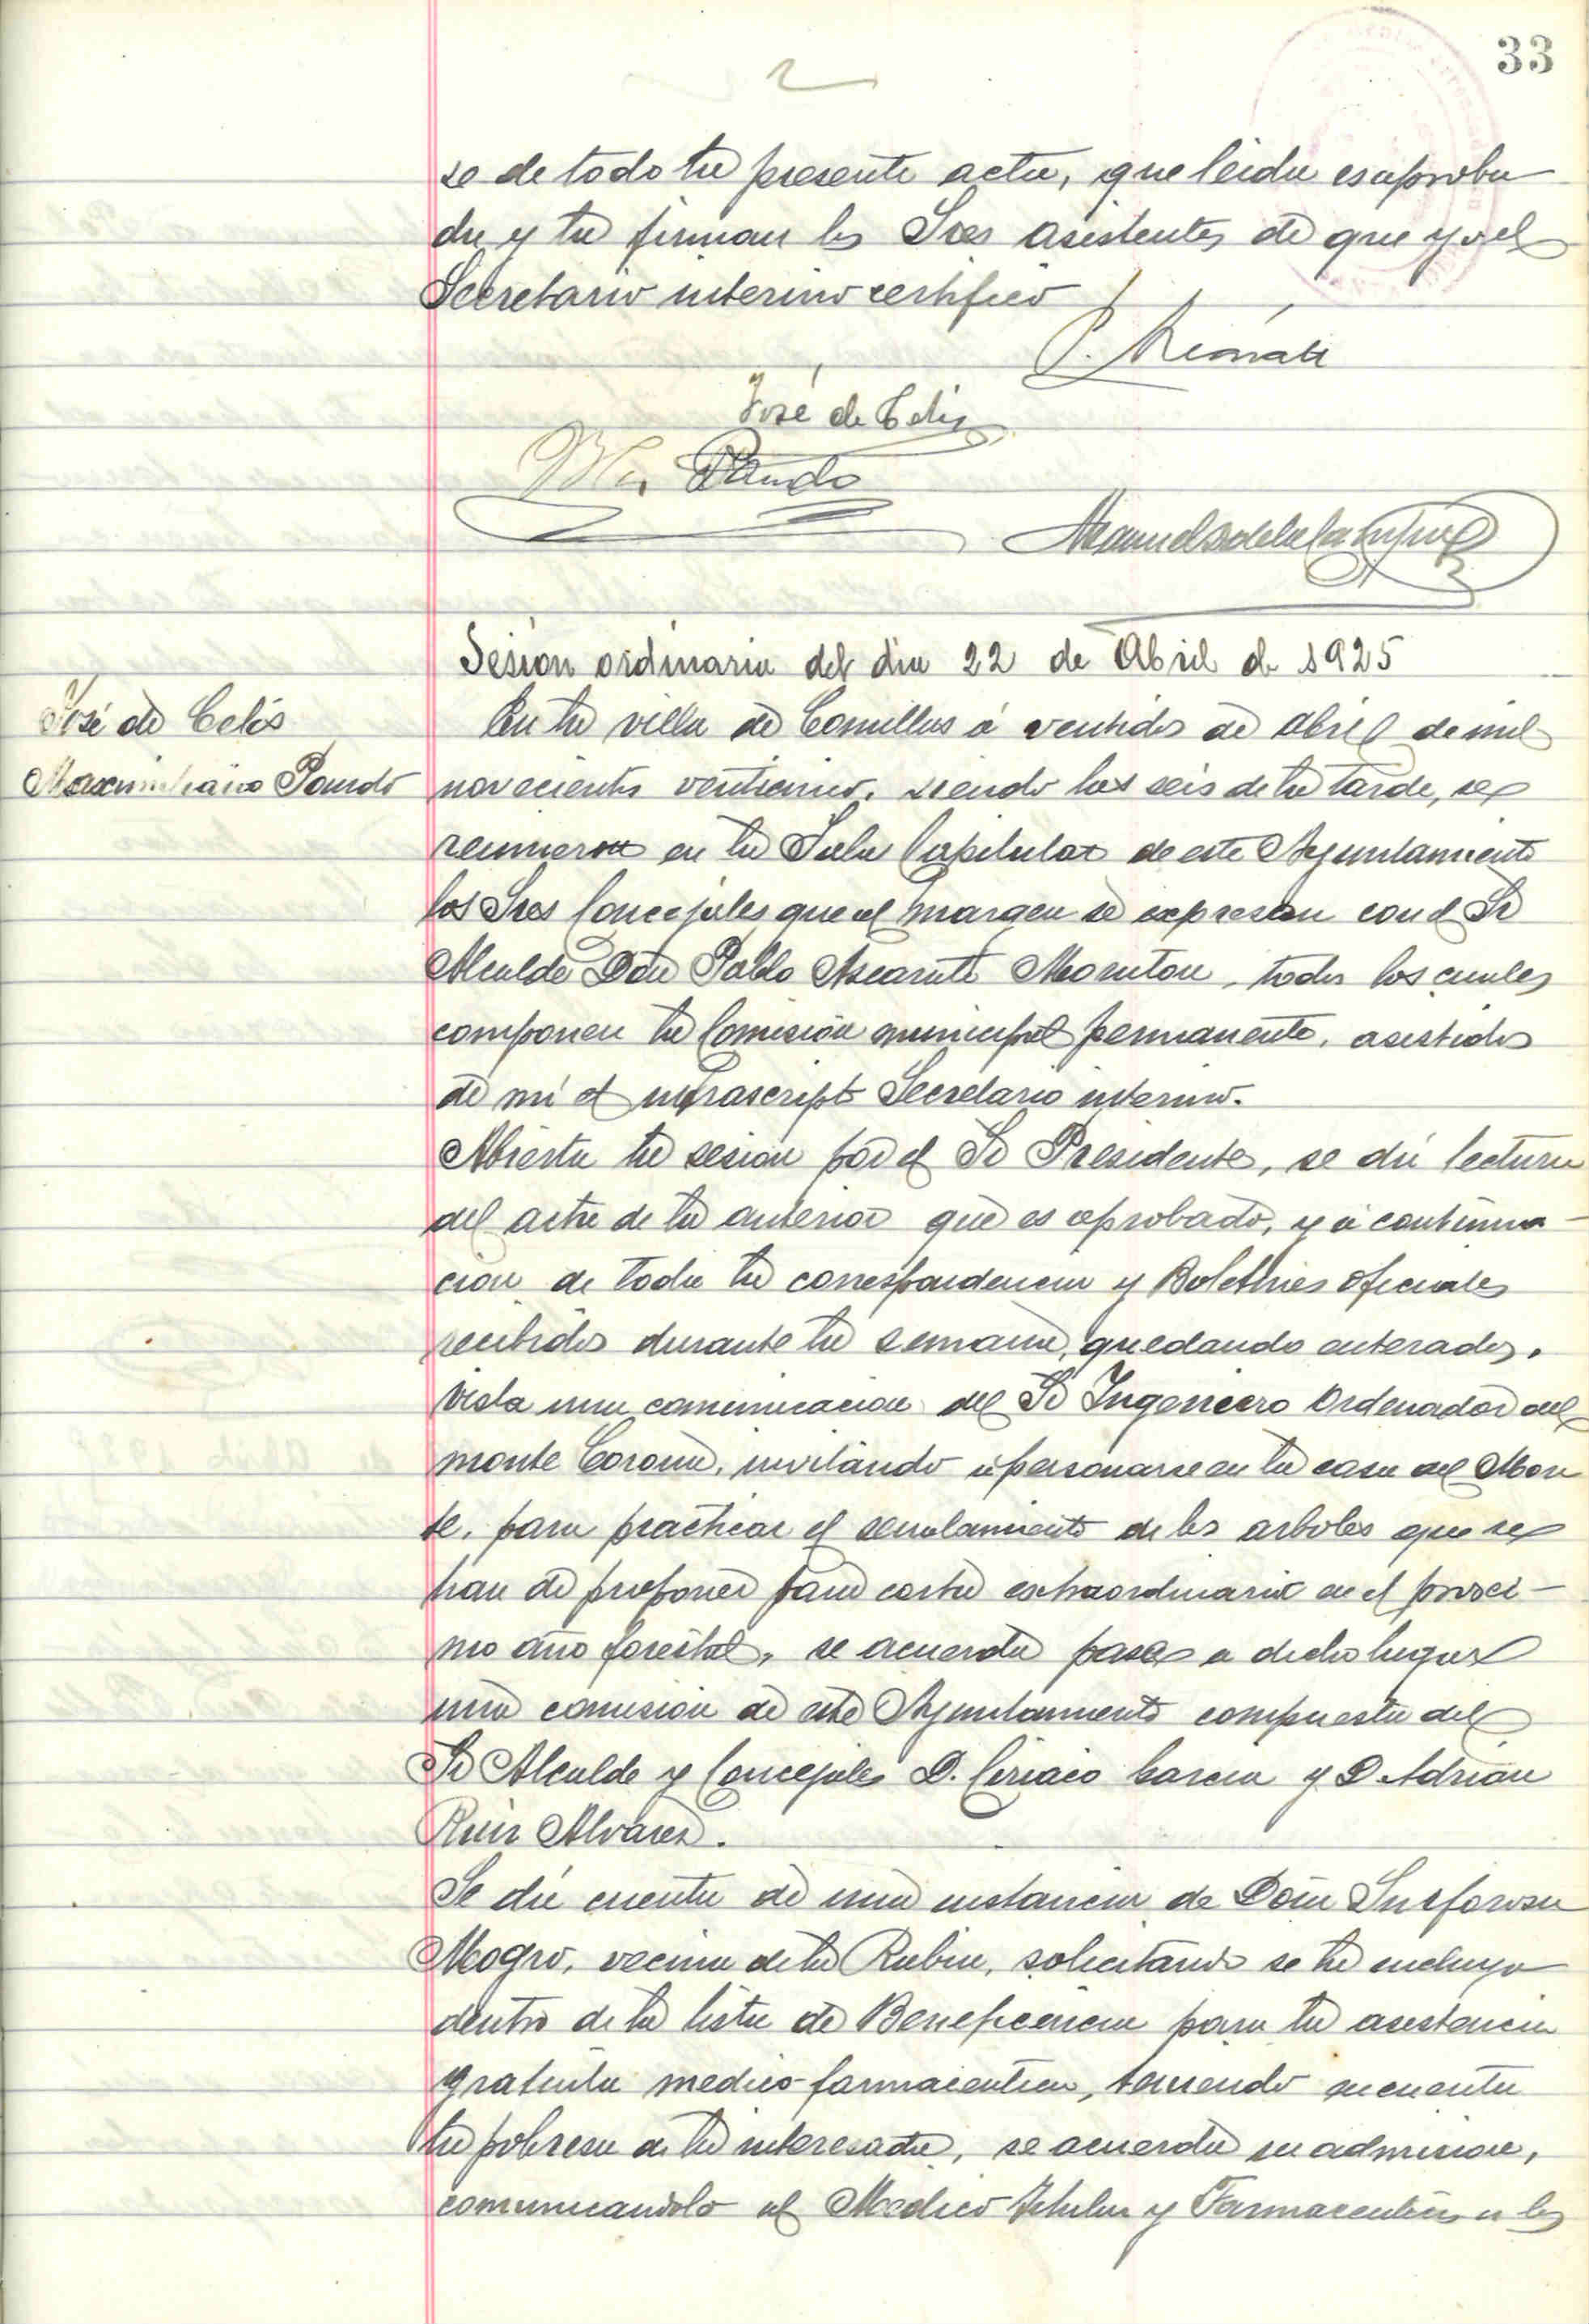 33
se de todo la presente acta, que leida es aproba
da y la firman los Sres asistentes de que yo el
Secretario interino certifico
José de Celis
Pando
Sesion ordinaria del dia 22 de Abril de 1925
José de Celis
Maximiliano Pando
En la villa de Comillas á ventidos de abril de mil
novecientos venticinco, siendo las seis de la tarde, se
reunieron en la Sala Capitular de este Ayuntamiento
los Sres Concejales que al margen se expresan con el Sr
Alcalde Don Pablo Azcarate, todos los cuales
componen la Comisión municipal permanente, asistidos
de mi el infrascripto Secretario interino.
Abierta la sesion por el Sr Presidente, se dá lectura
del acta de la anterior que es aprobada, y á continua-
cion de toda la correspondencia y Boletines oficiales
recibidos durante la semana, quedando enterados.
Vista una comunicacion del Sr Ingeniero Ordenador del
monte Corona, invitando á personarse en la casa del Mon
te, para practicar el senalamiento de los arboles que se
han de proponer para corta extraordinaria en el proxi-
mo año forestal, se acuerda pase a dicho lugar
una comision de este Ayuntamiento compuesta del
Sr Alcalde y Concejales D. Ciriaco Garcia y D. Adrian
Ruiz Alvarez.
Se dá cuenta de una instancia de Doña Sinforosa
Mogro, vecina de la Rabia, solicitando se la incluya
dentro de la lista de Beneficencia para la asistencia
gratuita medico-farmaceutica, teniendo en cuenta
la pobresa de la interesada, se acuerda su admision,
comunicandolo al Medico titular y Farmaceutico a los